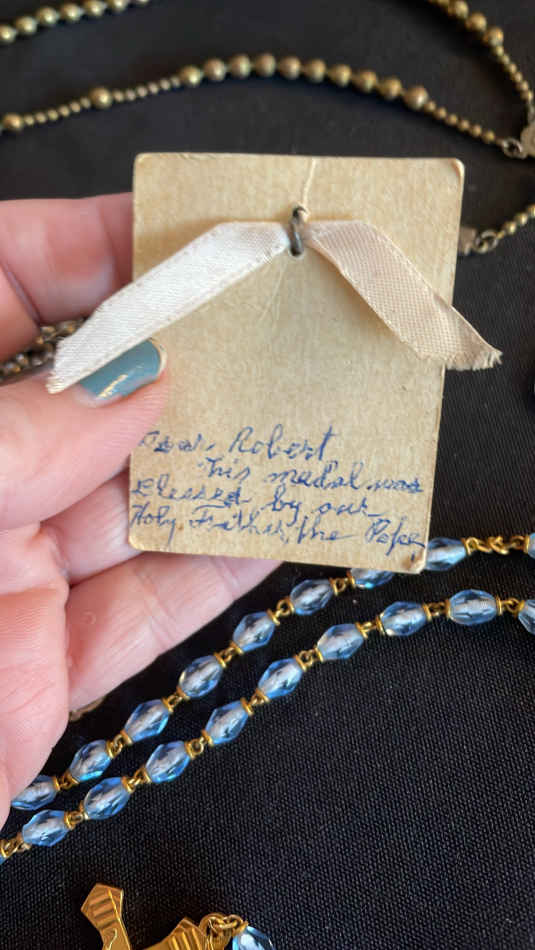 Dear Robert
This medal was
blessed by our
Holy Father, the Pope,